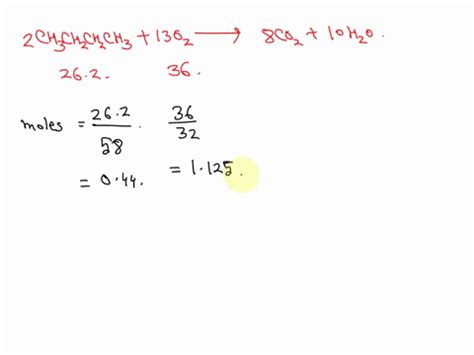 2CH3CH2CH2CH3 + 13O2 → 8CO2 + 10H2O.
26.2. 36.
moles = 26.2/58 . 36/32
= 0.44. = 1.125.